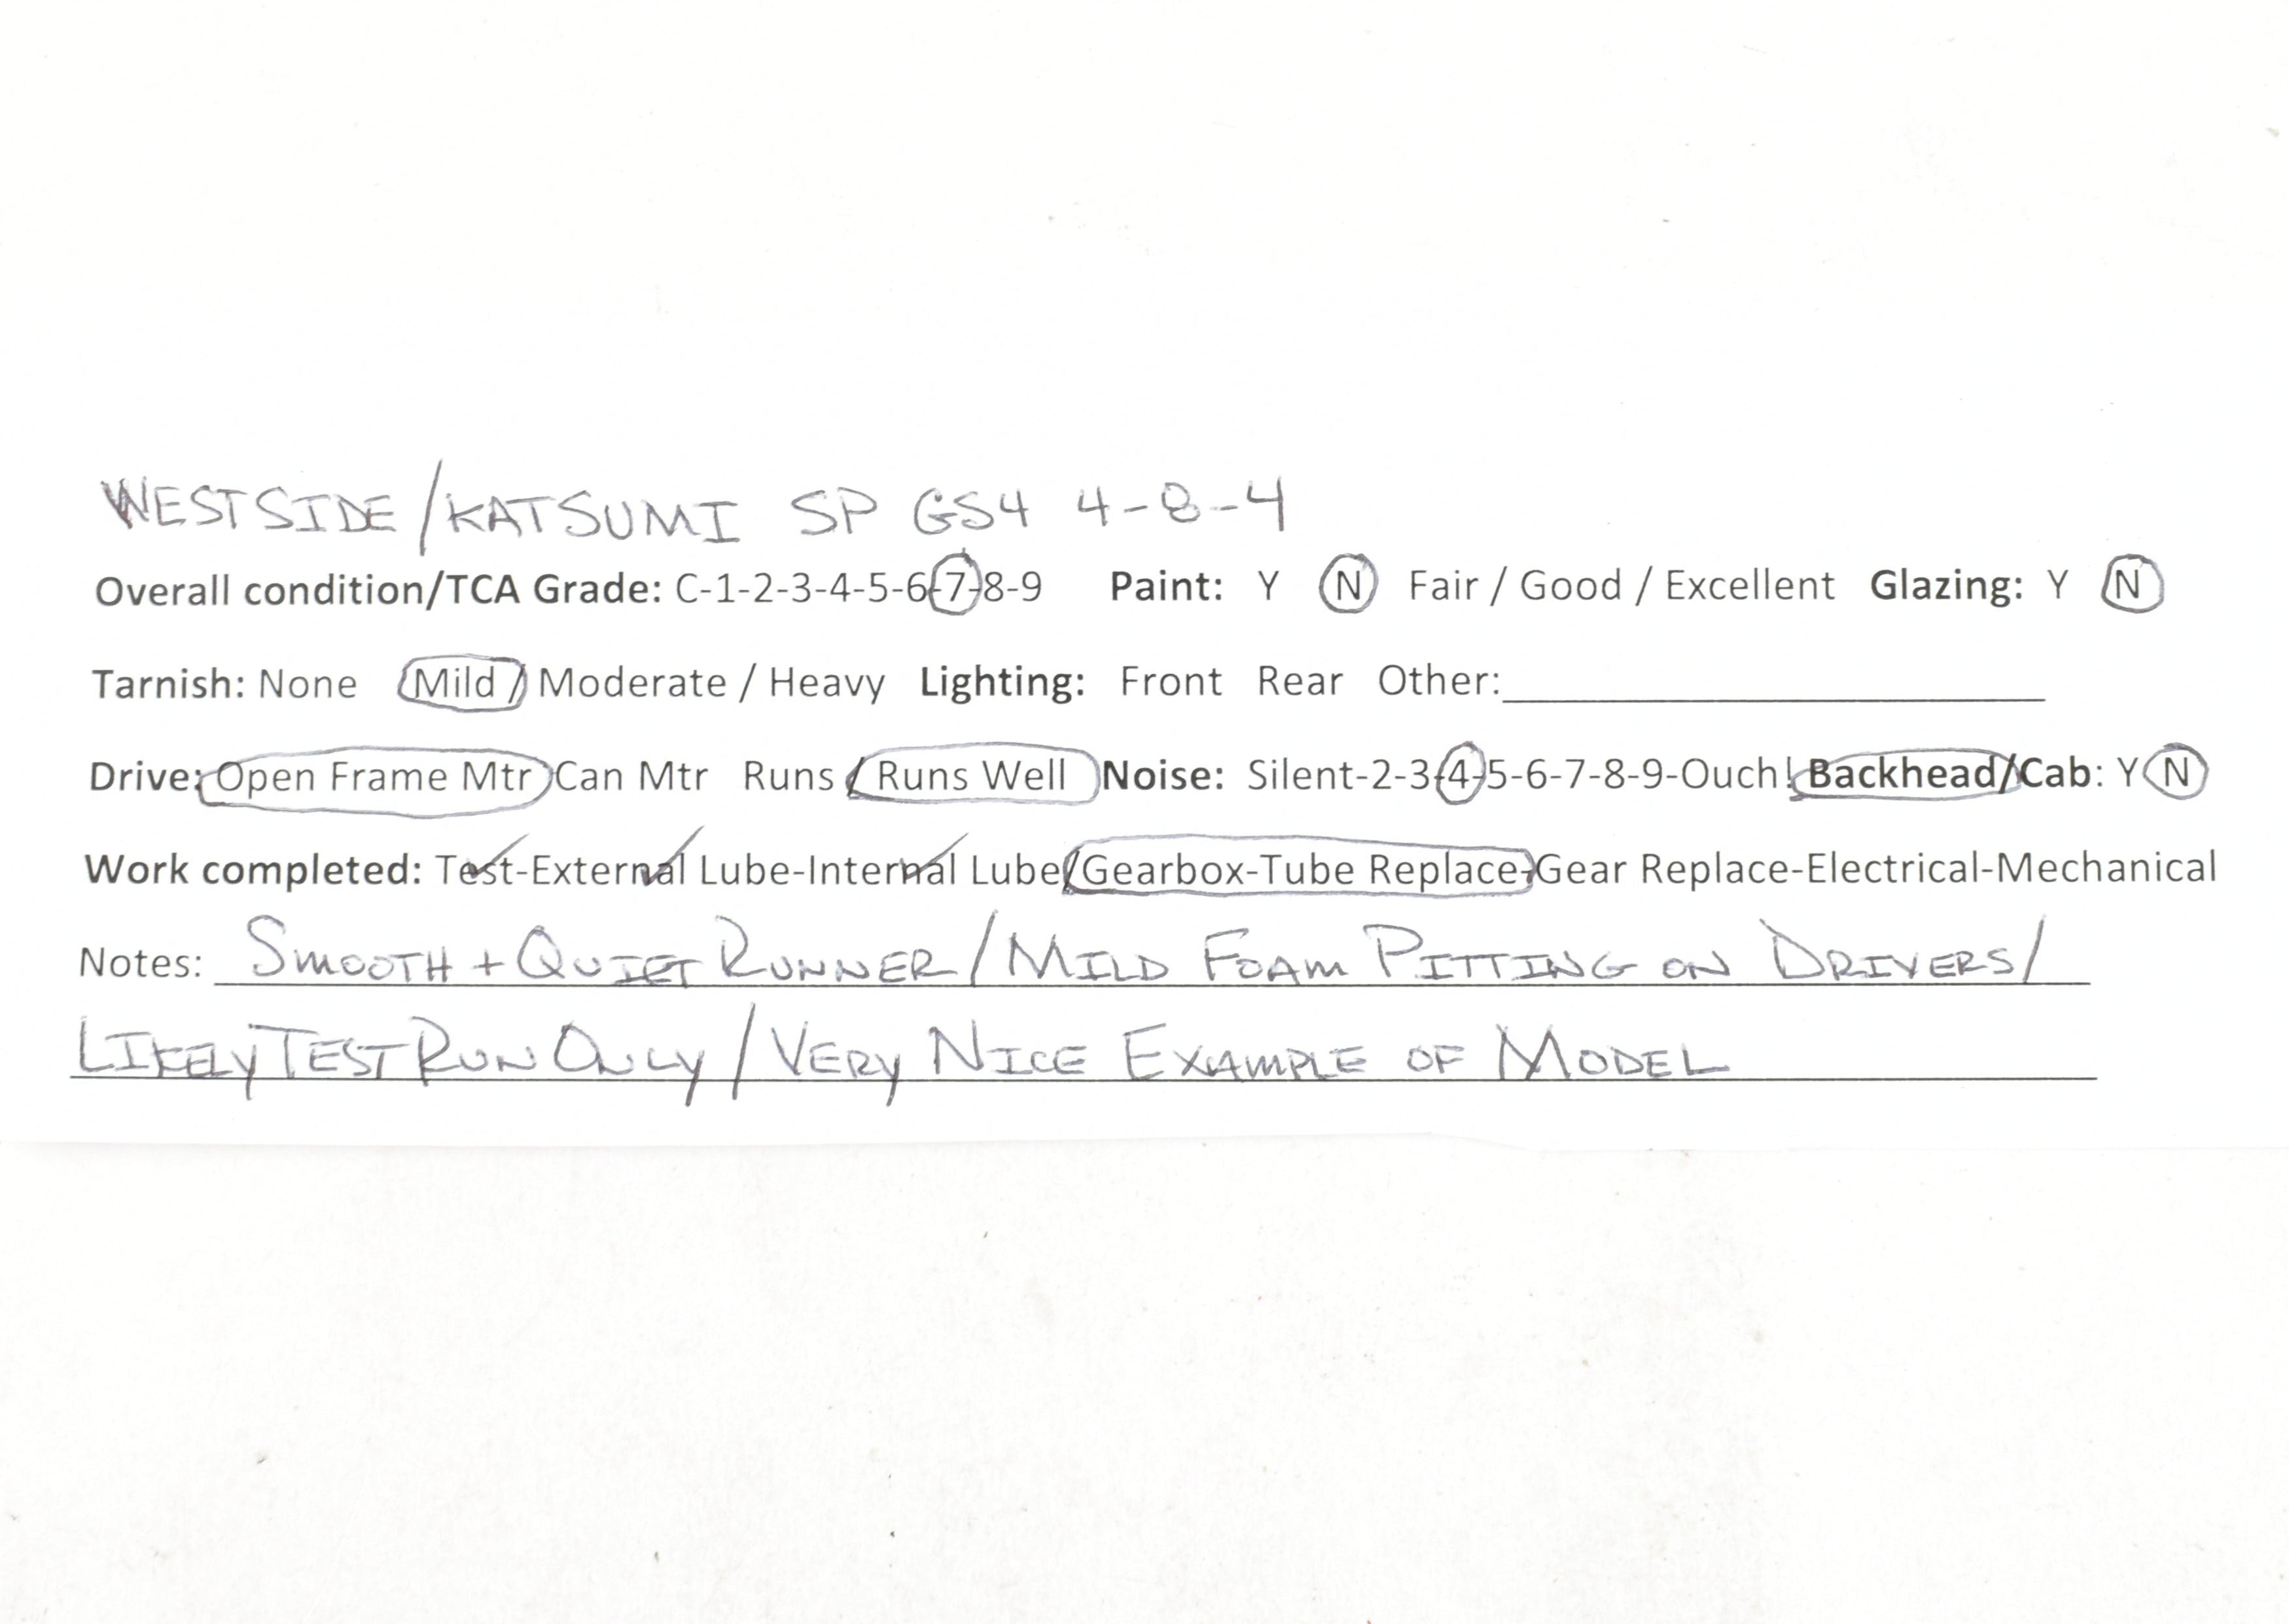 WESTSIDE/KATSUMI SP GS4 4-8-4
Overall condition/TCA Grade: C-1-2-3-4-5-6-7-8-9 Paint: Y N Fair / Good / Excellent Glazing: Y N
Tarnish: None Mild / Moderate / Heavy Lighting: Front Rear Other:
Drive: Open Frame Mtr Can Mtr Runs / Runs Well Noise: Silent-2-3-4-5-6-7-8-9-Ouch! Backhead/Cab: Y N
Work completed: Test-External Lube-Internal Lube/Gearbox-Tube Replace-Gear Replace-Electrical-Mechanical
Notes: SMOOTH + QUIET RUNNER / MILD FOAM PITTING ON DRIVERS/
LIKELY TEST RUN ONLY / VERY NICE EXAMPLE OF MODEL